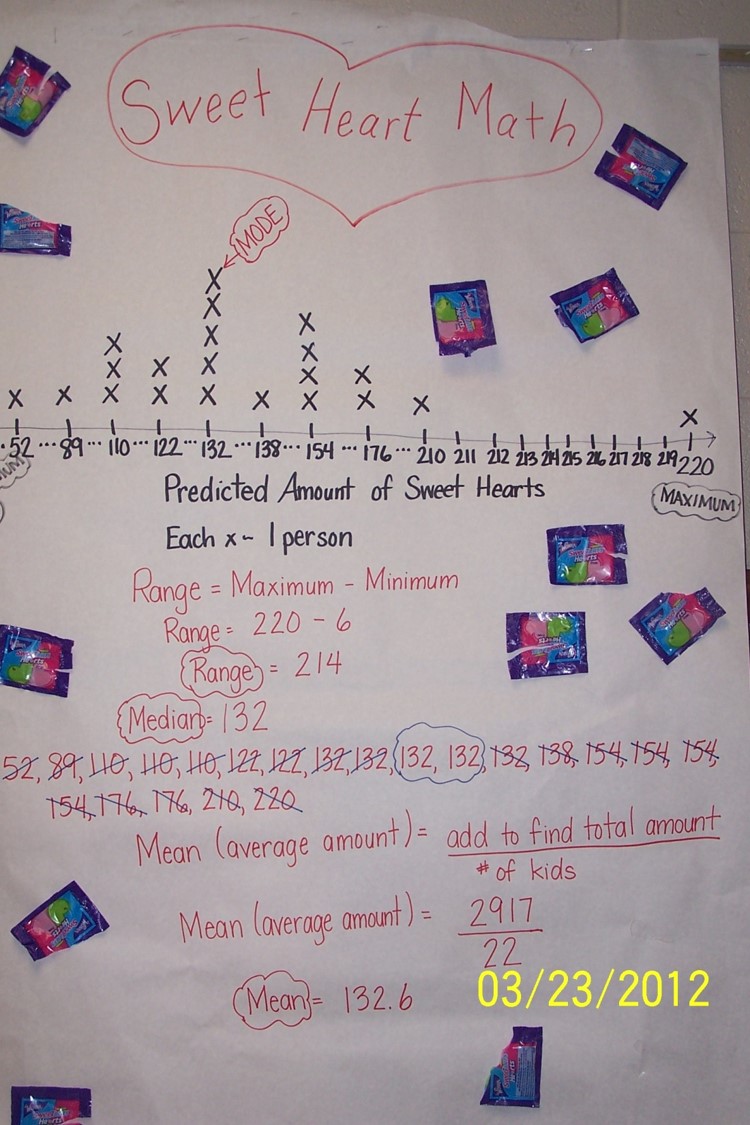 Sweet Heart Math
MODE
X
X
X X
X X X
X X X X X
X X X X X X X X X X
52 ... 89 ... 110 ... 122 ... 132 ... 138 ... 154 ... 176 ... 210 211 212 213 214 215 216 217 218 219 220
MAXIMUM
Predicted Amount of Sweet Hearts
Each x ~ 1 person
Range = Maximum - Minimum
Range = 220 - 6
Range = 214
Median = 132
52, 89, 110, 110, 110, 122, 122, 132, 132, 132, 132, 132, 138, 154, 154, 154,
154, 176, 176, 210, 220
Mean (average amount) = add to find total amount
# of kids
Mean (average amount) = 2917
22
Mean = 132.6
03/23/2012